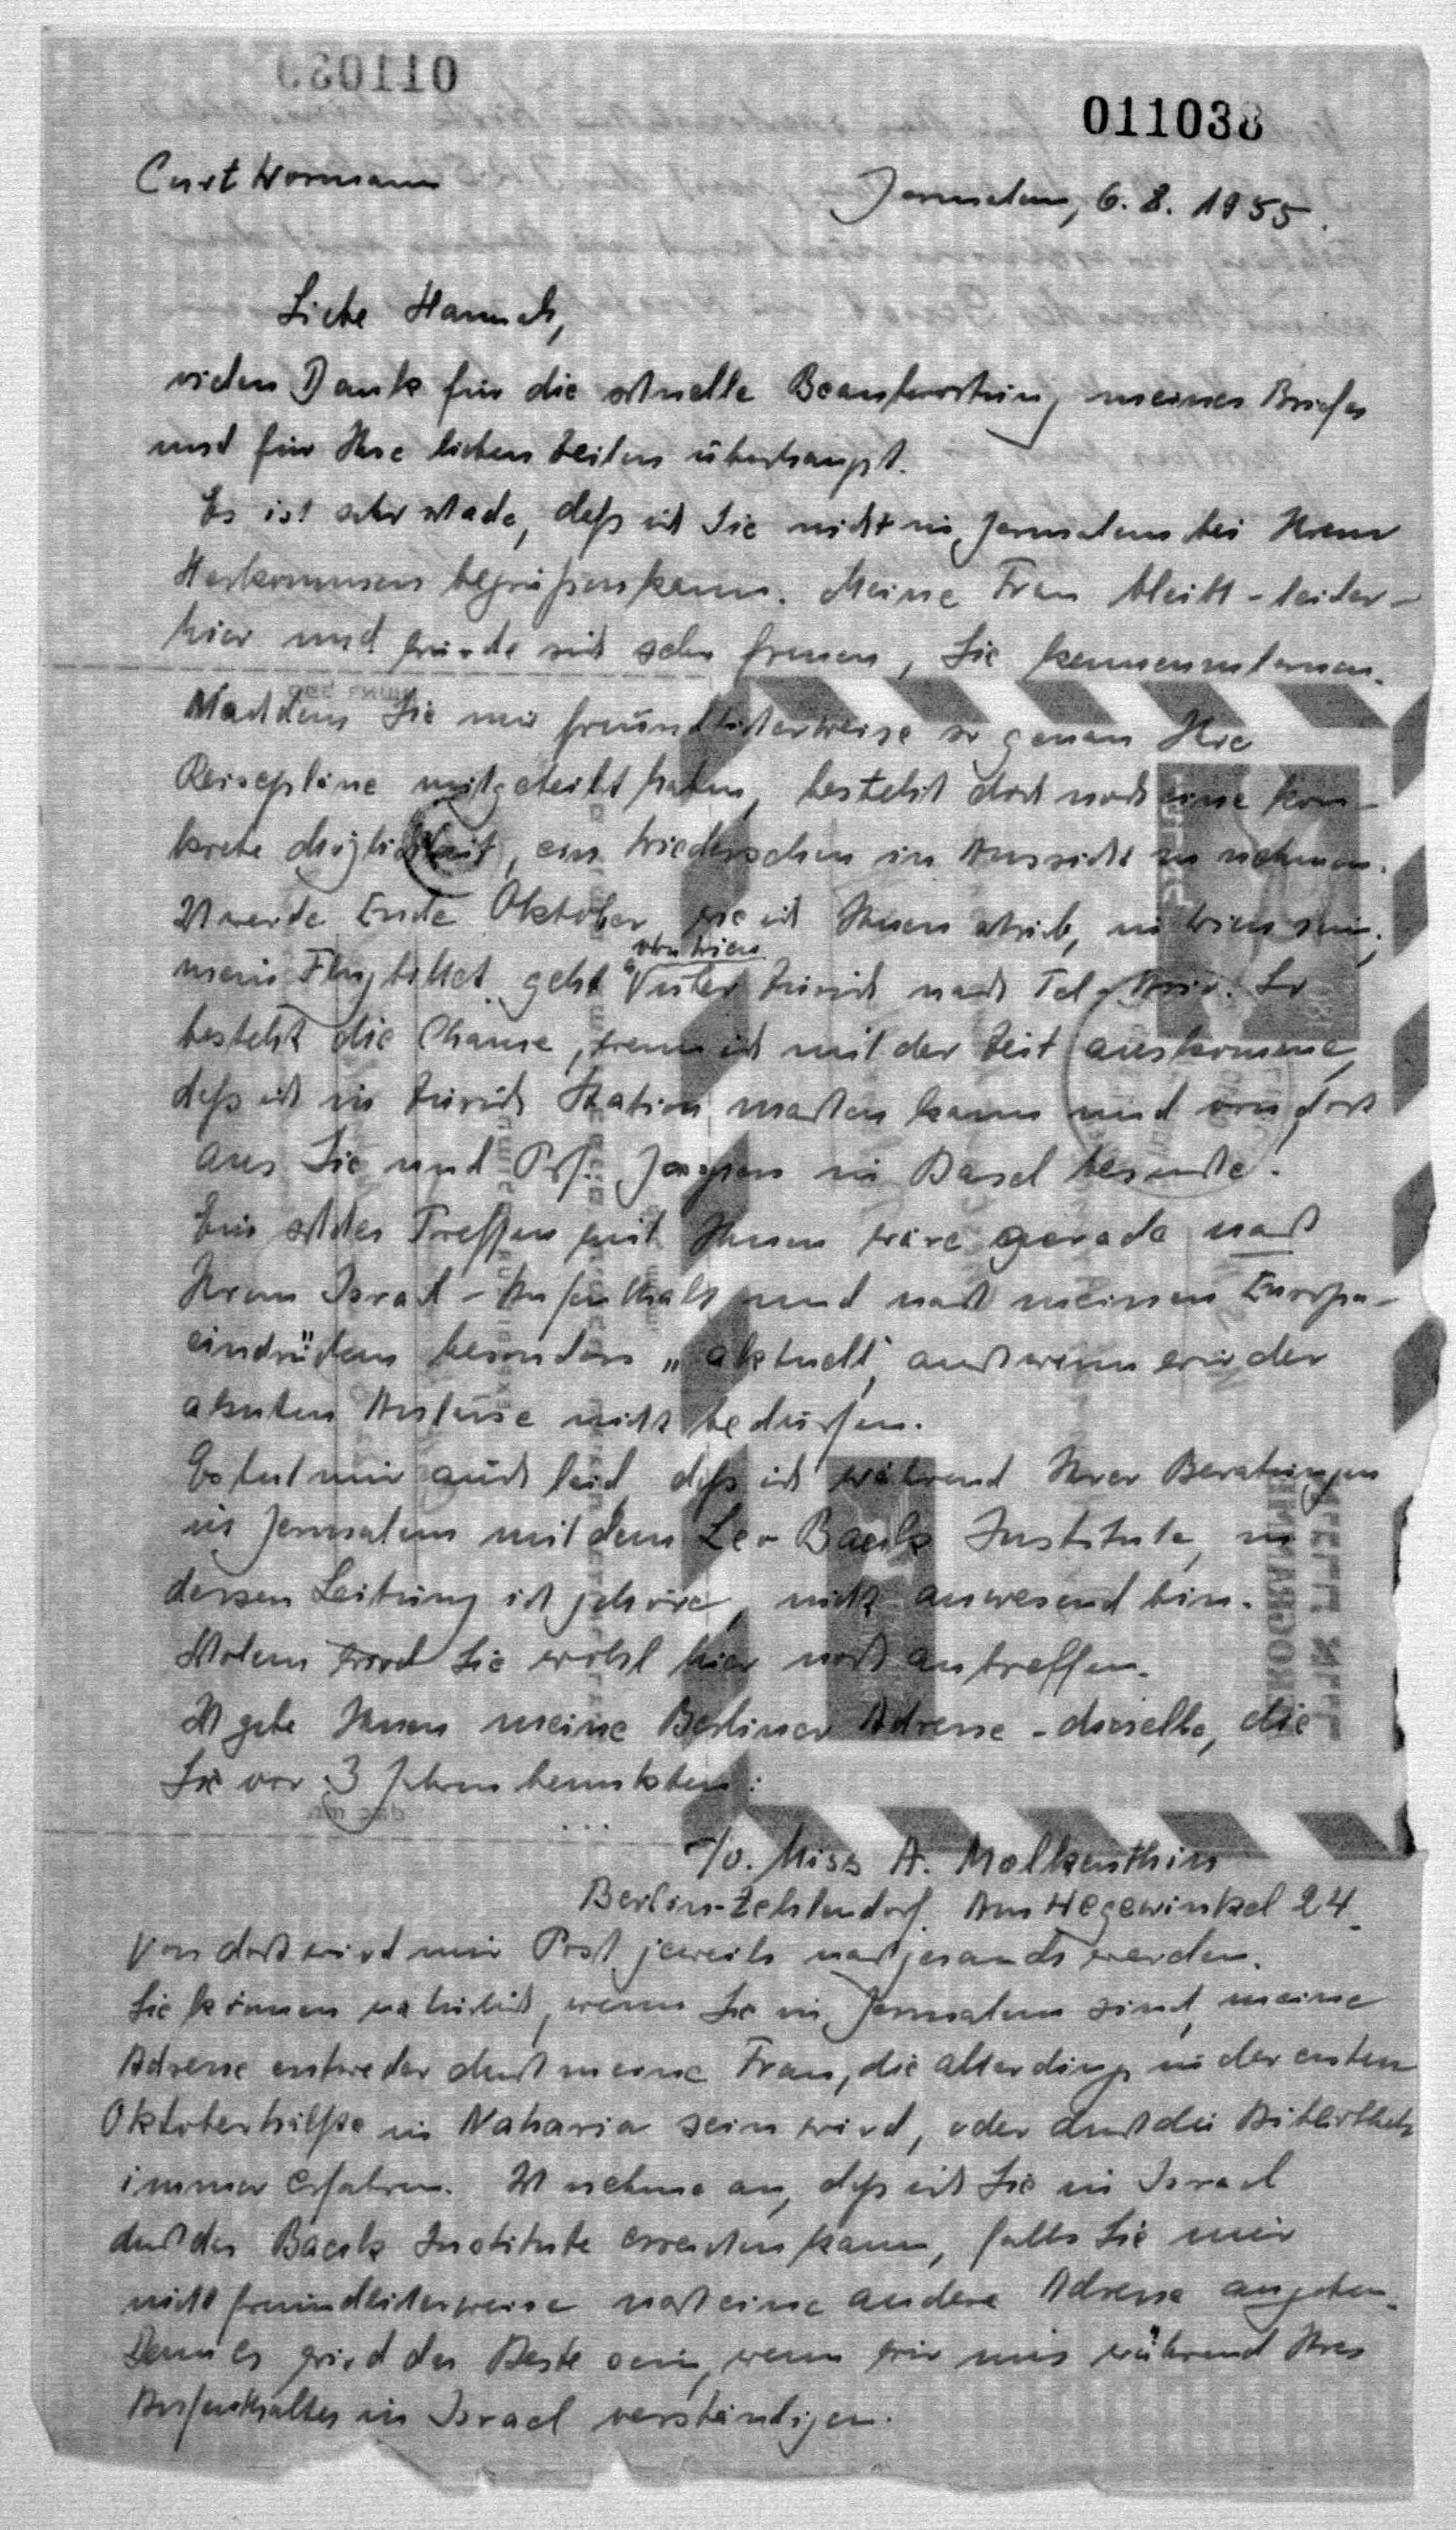 011038
Curt Wormann
Jerusalem, 6. 8. 1955.
Liebe Hannah,
vielen Dank für die schnelle Beantwortung meines Briefes
und für Ihre lieben Zeilen überhaupt.
Es ist sehr schade, daß ich Sie nicht in Jerusalem bei Ihrem
Herkommen begrüßen kann. Meine Frau bleibt - leider -
hier und würde sich sehr freuen, Sie kennenzulernen.
Nachdem Sie mir freundlicherweise so genau Ihre
Reisepläne mitgeteilt haben, besteht doch noch eine kon-
krete Möglichkeit, ein Wiedersehen in Aussicht zu nehmen.
Ich werde Ende Oktober, wie ich Ihnen schrieb, in Wien sein;
von Wien
mein Flugbillet geht über Zürich nach Tel-Aviv. So
besteht die Chance, wenn ich mit der Zeit auskomme,
daß ich in Zürich Station machen kann und von dort
aus Sie und Prof. Jaspers in Basel besuche.
Ein solches Treffen mit Ihnen wäre gerade nach
Ihrem Israel-Aufenthalt und nach meinen Europa-
eindrücken besonders „aktuell", auch wenn wir der
akuten Anlässe nicht bedürfen.
Es tut mir auch leid, daß ich während Ihrer Beratungen
in Jerusalem mit dem Leo Baeck Institute, zu
dessen Leitung ich gehöre, nicht anwesend bin.
Scholem wird Sie wohl hier noch antreffen.
Ich gebe Ihnen meine Berliner Adresse - dieselbe, die
Sie vor 3 Jahren benutzten:
c/o. Miss A. Molkenthin
Berlin-Zehlendorf. Am Hegewinkel 24.
Von dort wird mir Post jeweils nachgesandt werden.
Sie können natürlich, wenn Sie in Jerusalem sind, meine
Adresse entweder durch meine Frau, die allerdings in der ersten
Oktoberhälfte in Naharia sein wird, oder durch die Bibliothek
immer erfahren. Ich nehme an, daß ich Sie in Israel
durch das Baeck Institute erreichen kann, falls Sie mir
nicht freundlicherweise noch eine andere Adresse angeben.
Denn es wird das Beste sein, wenn wir uns während Ihres
Aufenthaltes in Israel verständigen.